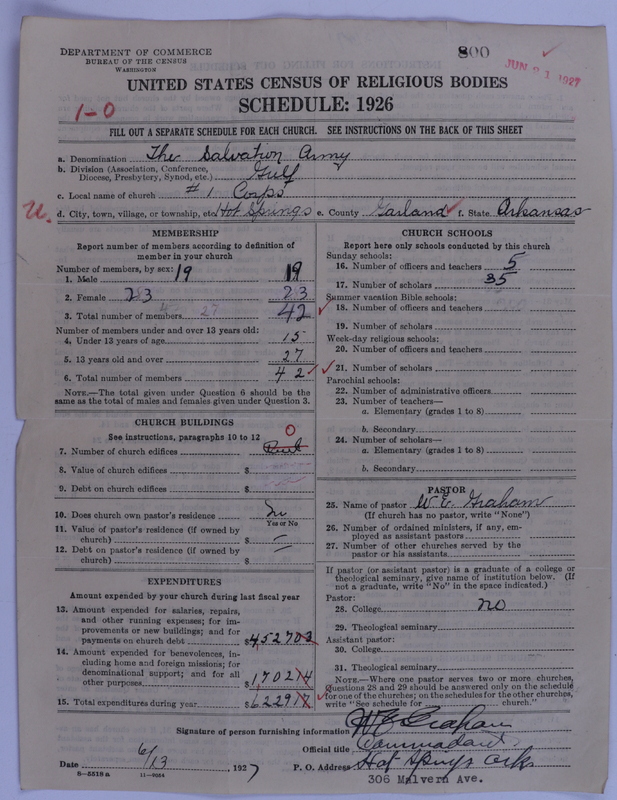 DEPARTMENT OF COMMERCE
BUREAU OF THE CENSUS
WASHINGTON
800
JUN 21 1927
UNITED STATES CENSUS OF RELIGIOUS BODIES
SCHEDULE: 1926
1-0
FILL OUT A SEPARATE SCHEDULE FOR EACH CHURCH. SEE INSTRUCTIONS ON THE BACK OF THIS SHEET
a. Denomination The Salvation Army
b. Division (Association, Conference, Diocese, Presbytery, Synod, etc.) Gulf
c. Local name of church #1 Corps
U. d. City, town, village, or township, etc. Hot Springs e. County Garland f. State Arkansas
MEMBERSHIP
Report number of members according to definition of member in your church
Number of members, by sex:
1. Male 19 19
2. Female 23 23
3. Total number of members 27 42
Number of members under and over 13 years old:
4. Under 13 years of age 15
5. 13 years old and over 27
6. Total number of members 42
NOTE.—The total given under Question 6 should be the same as the total of males and females given under Question 3.
CHURCH BUILDINGS
See instructions, paragraphs 10 to 12
7. Number of church edifices 0
8. Value of church edifices $
9. Debt on church edifices $
10. Does church own pastor's residence no
Yes or No
11. Value of pastor's residence (if owned by church) $ —
12. Debt on pastor's residence (if owned by church) $ —
EXPENDITURES
Amount expended by your church during last fiscal year
13. Amount expended for salaries, repairs, and other running expenses; for improvements or new buildings; and for payments on church debt $ 452703
14. Amount expended for benevolences, including home and foreign missions; for denominational support; and for all other purposes $ 170214
15. Total expenditures during year $ 622917
CHURCH SCHOOLS
Report here only schools conducted by this church
Sunday schools:
16. Number of officers and teachers 5
17. Number of scholars 35
Summer vacation Bible schools:
18. Number of officers and teachers
19. Number of scholars
Week-day religious schools:
20. Number of officers and teachers
21. Number of scholars
Parochial schools:
22. Number of administrative officers
23. Number of teachers—
a. Elementary (grades 1 to 8)
b. Secondary
24. Number of scholars—
a. Elementary (grades 1 to 8)
b. Secondary
PASTOR
25. Name of pastor W E Graham
(If church has no pastor, write "None")
26. Number of ordained ministers, if any, employed as assistant pastors
27. Number of other churches served by the pastor or his assistants
If pastor (or assistant pastor) is a graduate of a college or theological seminary, give name of institution below. (If not a graduate, write "No" in the space indicated.)
Pastor:
28. College no
29. Theological seminary
Assistant pastor:
30. College
31. Theological seminary
NOTE.—Where one pastor serves two or more churches, Questions 28 and 29 should be answered only on the schedule for one of the churches; on the schedules for the other churches, write "See schedule for church."
Signature of person furnishing information W E Graham
Official title Commadant
Date 6/13 1927 P. O. Address Hot Springs Arks
8-5518a 11-9054
306 Malvern Ave.